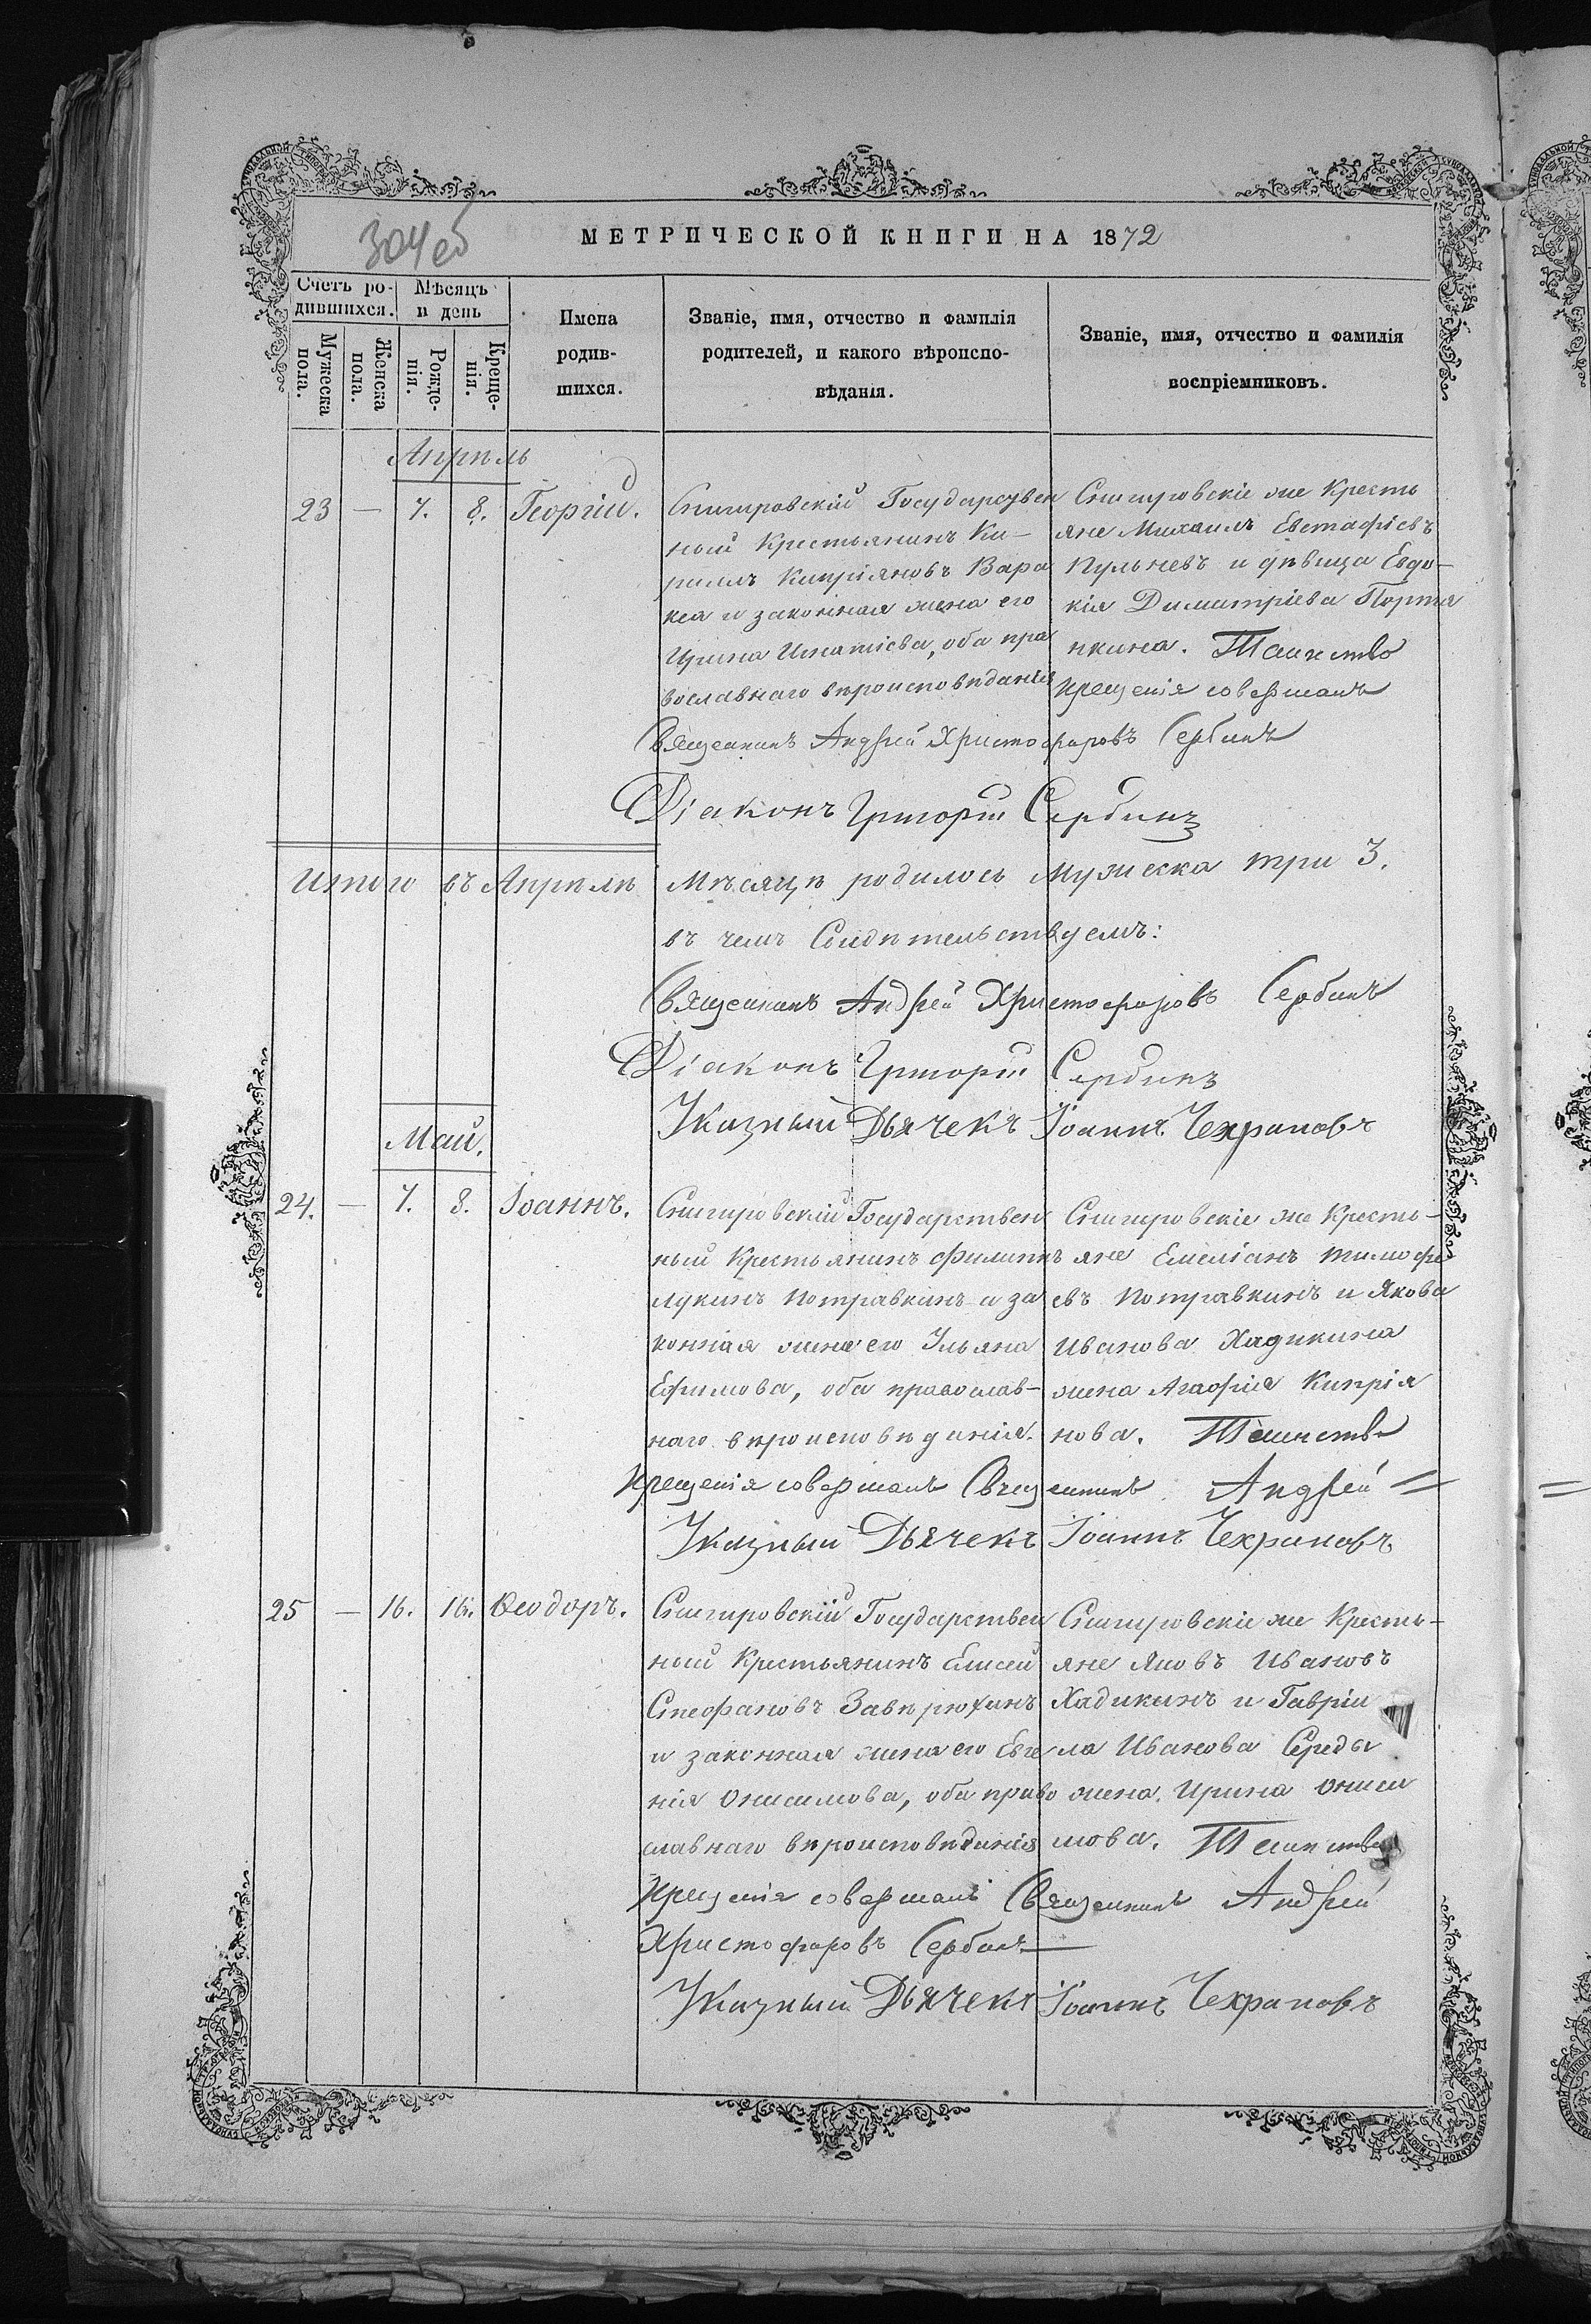 304об
МЕТРИЧЕСКОЙ КНИГИ НА 1872
Счетъ ро-
дившихся.
Мѣсяцъ
и день
Мужеска
пола.
Женска
пола.
Рожде-
нія.
Креще-
нія.
Имена
родив-
шихся.
Званіе, имя, отчество и фамилія
родителей, и какого вѣроиспо-
вѣданія.
Званіе, имя, отчество и фамилія
воспріемниковъ.
Апрѣль
23 — 7. 8. Георгій.
Снигировскій Государствен
ный Крестьянинъ Ки-
риллъ Кипріяновъ Вара
кса и законная жена его
Ирина Игнатіева, оба пра
вославнаго вѣроисповѣданія
Снигировскіе же Кресть
яне Михаилъ Евстафіевъ
Пульневъ и дѣвица Евдо-
кія Димитріева Портя
нкина. Таинство
крещенія совершалъ
Священникъ Андрей Христофоровъ Сербинъ
Діаконъ Григорій Сербинъ
Итого въ Апрѣлѣ Мѣсяцѣ родилось Мужеска три 3.
въ чемъ Свидѣтельствуемъ:
Священникъ Андрей Христофоровъ Сербинъ
Діаконъ Григорій Сербинъ
Указный Дьячекъ Іоаннъ Чехрановъ
Май.
24. — 7. 8. Іоаннъ.
Снигировскій Государствен
ный Крестьянинъ Филиппъ
Лукинъ Потравкинъ и за
конная жена его Ульяна
Ефимова, оба православ-
наго вѣроисповѣданія.
Снигировскіе же Кресть-
яне Емеліанъ Тимофе
евъ Потравкинъ и Якова
Иванова Хадикина
жена Агафія Кипрія
нова. Таинство
крещенія совершалъ Священникъ Андрей =
Указный Дьячекъ Іоаннъ Чехрановъ
25 — 16. 16. Ѳеодоръ.
Снигировскій Государствен
ный Крестьянинъ Елисей
Стефановъ Завѣрюхинъ
и законная жена его Евге
нія Онисимова, оба право
славнаго вѣроисповѣданія
Снигировскіе же Кресть-
яне Яковъ Ивановъ
Хадикинъ и Гавріи
ла Иванова Середы
жена Ирина Ониси
мова. Таинство
крещенія совершалъ Священникъ Андрей
Христофоровъ Сербинъ —
Указный Дьячекъ Іоаннъ Чехрановъ